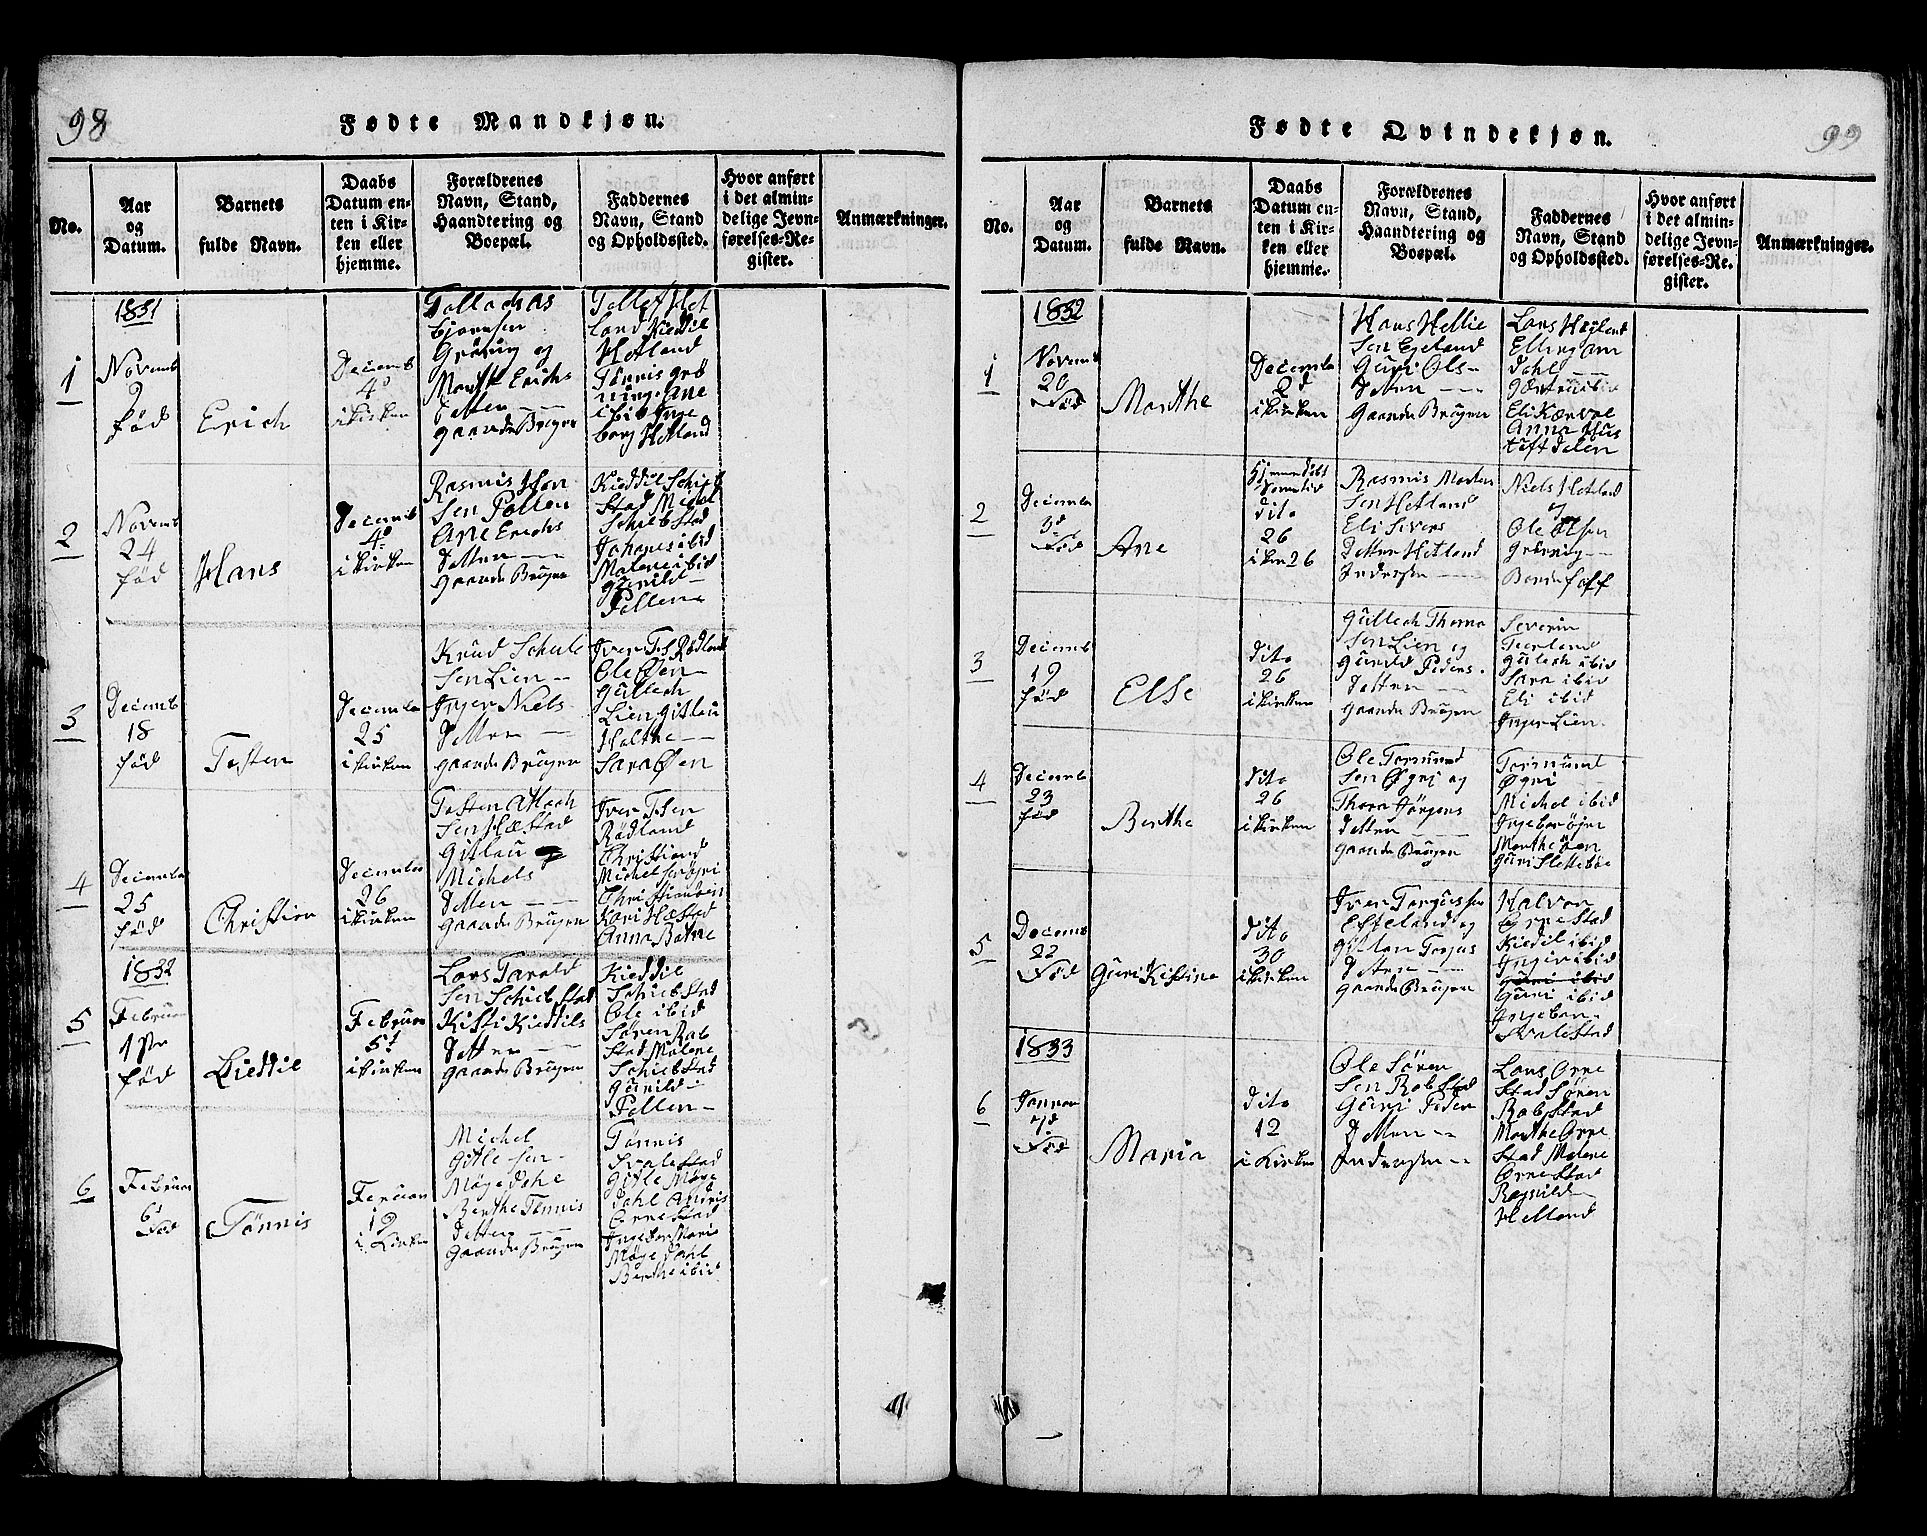 98
Fødte Mandkjøn.
No.
Aar
og
Datum.
Barnets
fulde Navn.
Daabs
Datum en-
ten i Kir-
ken eller
hjemme.
Forældrenes
Navn, Stand,
Haandtering og
Boepæl.
Faddernes
Navn, Stand
og Opholdssted.
Hvor anført
i det almin-
delige Jevn-
førelses-Re-
gister.
Anmærkninger.
1831
1
Novemb
9
fød
Erich
Decemb
4d
i kirken
Bjørnsen
Grøsnig og
Marthe Erichs
Detter
gaarde Bruger
Tollef Het
land Kieddil
Hetland
Tønnis grø
ning Ane
ibid Inge
borg Hetland
2
Novemb
24
fød
Hans
Decemb
4d
i kirken
Rasmis Han
Sen Pollen
Ane Erichs
Detter
gaarde Bruger
Kieddil Schieb
Stad Michel
Schiebstad
Johanes ibid
Malene ibid
gunild
Pollen
3
Decemb
18
fød
Tosten
Decembr
25
i kirken
Knud Schule
Sen Lien
Inger Niels
Detter
gaarde Bruger
Iver Tos Rødland
Ole Øen
Gullech
Lien Gitlau
Holthe
Sara Øen
4
Decembr
25
fød
Christian
Decembr
26
i kirken
Tosten Aslach
Sen Hæstad
Gitlau
Michels
Detter
gaarde Bruger
Iver Tosen
Rødland
Christiand
Michel Sen øgri
Kari Hæstad
Anna Botne
1832
5
Februar
1ste
fød
Kieddil
Februar
5d
i kirken
Lars Tarald
Sen Schiebstad
Kisti Kieddils
Detter
gaarde Bruger
Kieddil
Schiebstad
Ole ibid
Søren Rab
Stad Malene
Schiebstad
gunild
Pollen
6
Februar
6d
Fød
Tønnis
Feruar
19
i Kirken
Michel
Gitle sen
Møgedahe
Berthe Tønnis
Detter
gaarde Bruger
Tønnis
Svalestad
Gitle Møge
dahl Andris
Ørnestad
Ingebor Maris
Møgedahl
Berthe ibid
99
Fødte Qvindekjøn.
No.
Aar
og
Datum.
Barnets
fulde Navn.
Daabs
Datum en-
ten i Kir-
ken eller
hjemme.
Forældrenes
Navn, Stand,
Haandtering og
Boepæl.
Faddernes
Navn, Stand
og Opholdssted.
Hvor anført
i det almin-
delige Jevn-
førelses-Re-
gister.
Anmærkninger.
1832
1
Novemb
20
Fød
Marthe
Decembr
2d
i kirken
Hans Hellie
Sen Egeland
Guri Ols
Detter
Gaarde Bruger
Lars Hegland
Elling am
dahl
Eli Kærvae
Anna Hus
tuft Delen
2
Decembr
3d
Fød
Ane
dito
26
i kirk 26
Rasmis Morten
Sen Hetland
Eli Sivers
Detter Hetland
Indersten
Niels Hetland
og
Ole Olsen
3
Decemb
19
fød
Else
dito
26
i kirken
Gullech Thoma
Sen Lien og
gunild Peders
Detter
gaarde Bruger
Severin
Tuerland
Gulech ibid
Sara ibid
Eli ibid
Inger Lien
4
Decemb
23
fød
Berthe
dito
26
i kirken
Ole Tormund
Sen Øgri og
Thora Jørgens
Detter
gaarde Bruger
Tormund
Øgri
Michel ibid
Ingebor øgri
Marthe øen
guri Slettebøe
5
Decemb
22
Fød
Guri Kistine
dito
30
i kirken
Iver Torgussen
Efteland og
Gitlau Torgus
Detter
gaarde Bruger
Halvor
Ørnestad
Kiedil ibid
Inger ibid
guri ibid
Guri ibid
Ingebor
Svalestad
1833
6
Januar
7d
Fød
Maria
dito
12
i Kirken
Ole Søren
Sen Rabstad
Guri Peder
Detter
Indersten
Lars Ørne
Stad Søren
Rabstad
Marthe Ørne
Stad Malene
Ørnestad
Ragnild
Helland